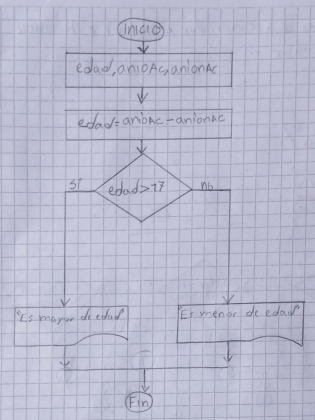 Inicio
edad, anioAc, anionac
edad = anioAc - anionac
edad > 17
si
no
"Es mayor de edad"
"Es menor de edad"
Fin